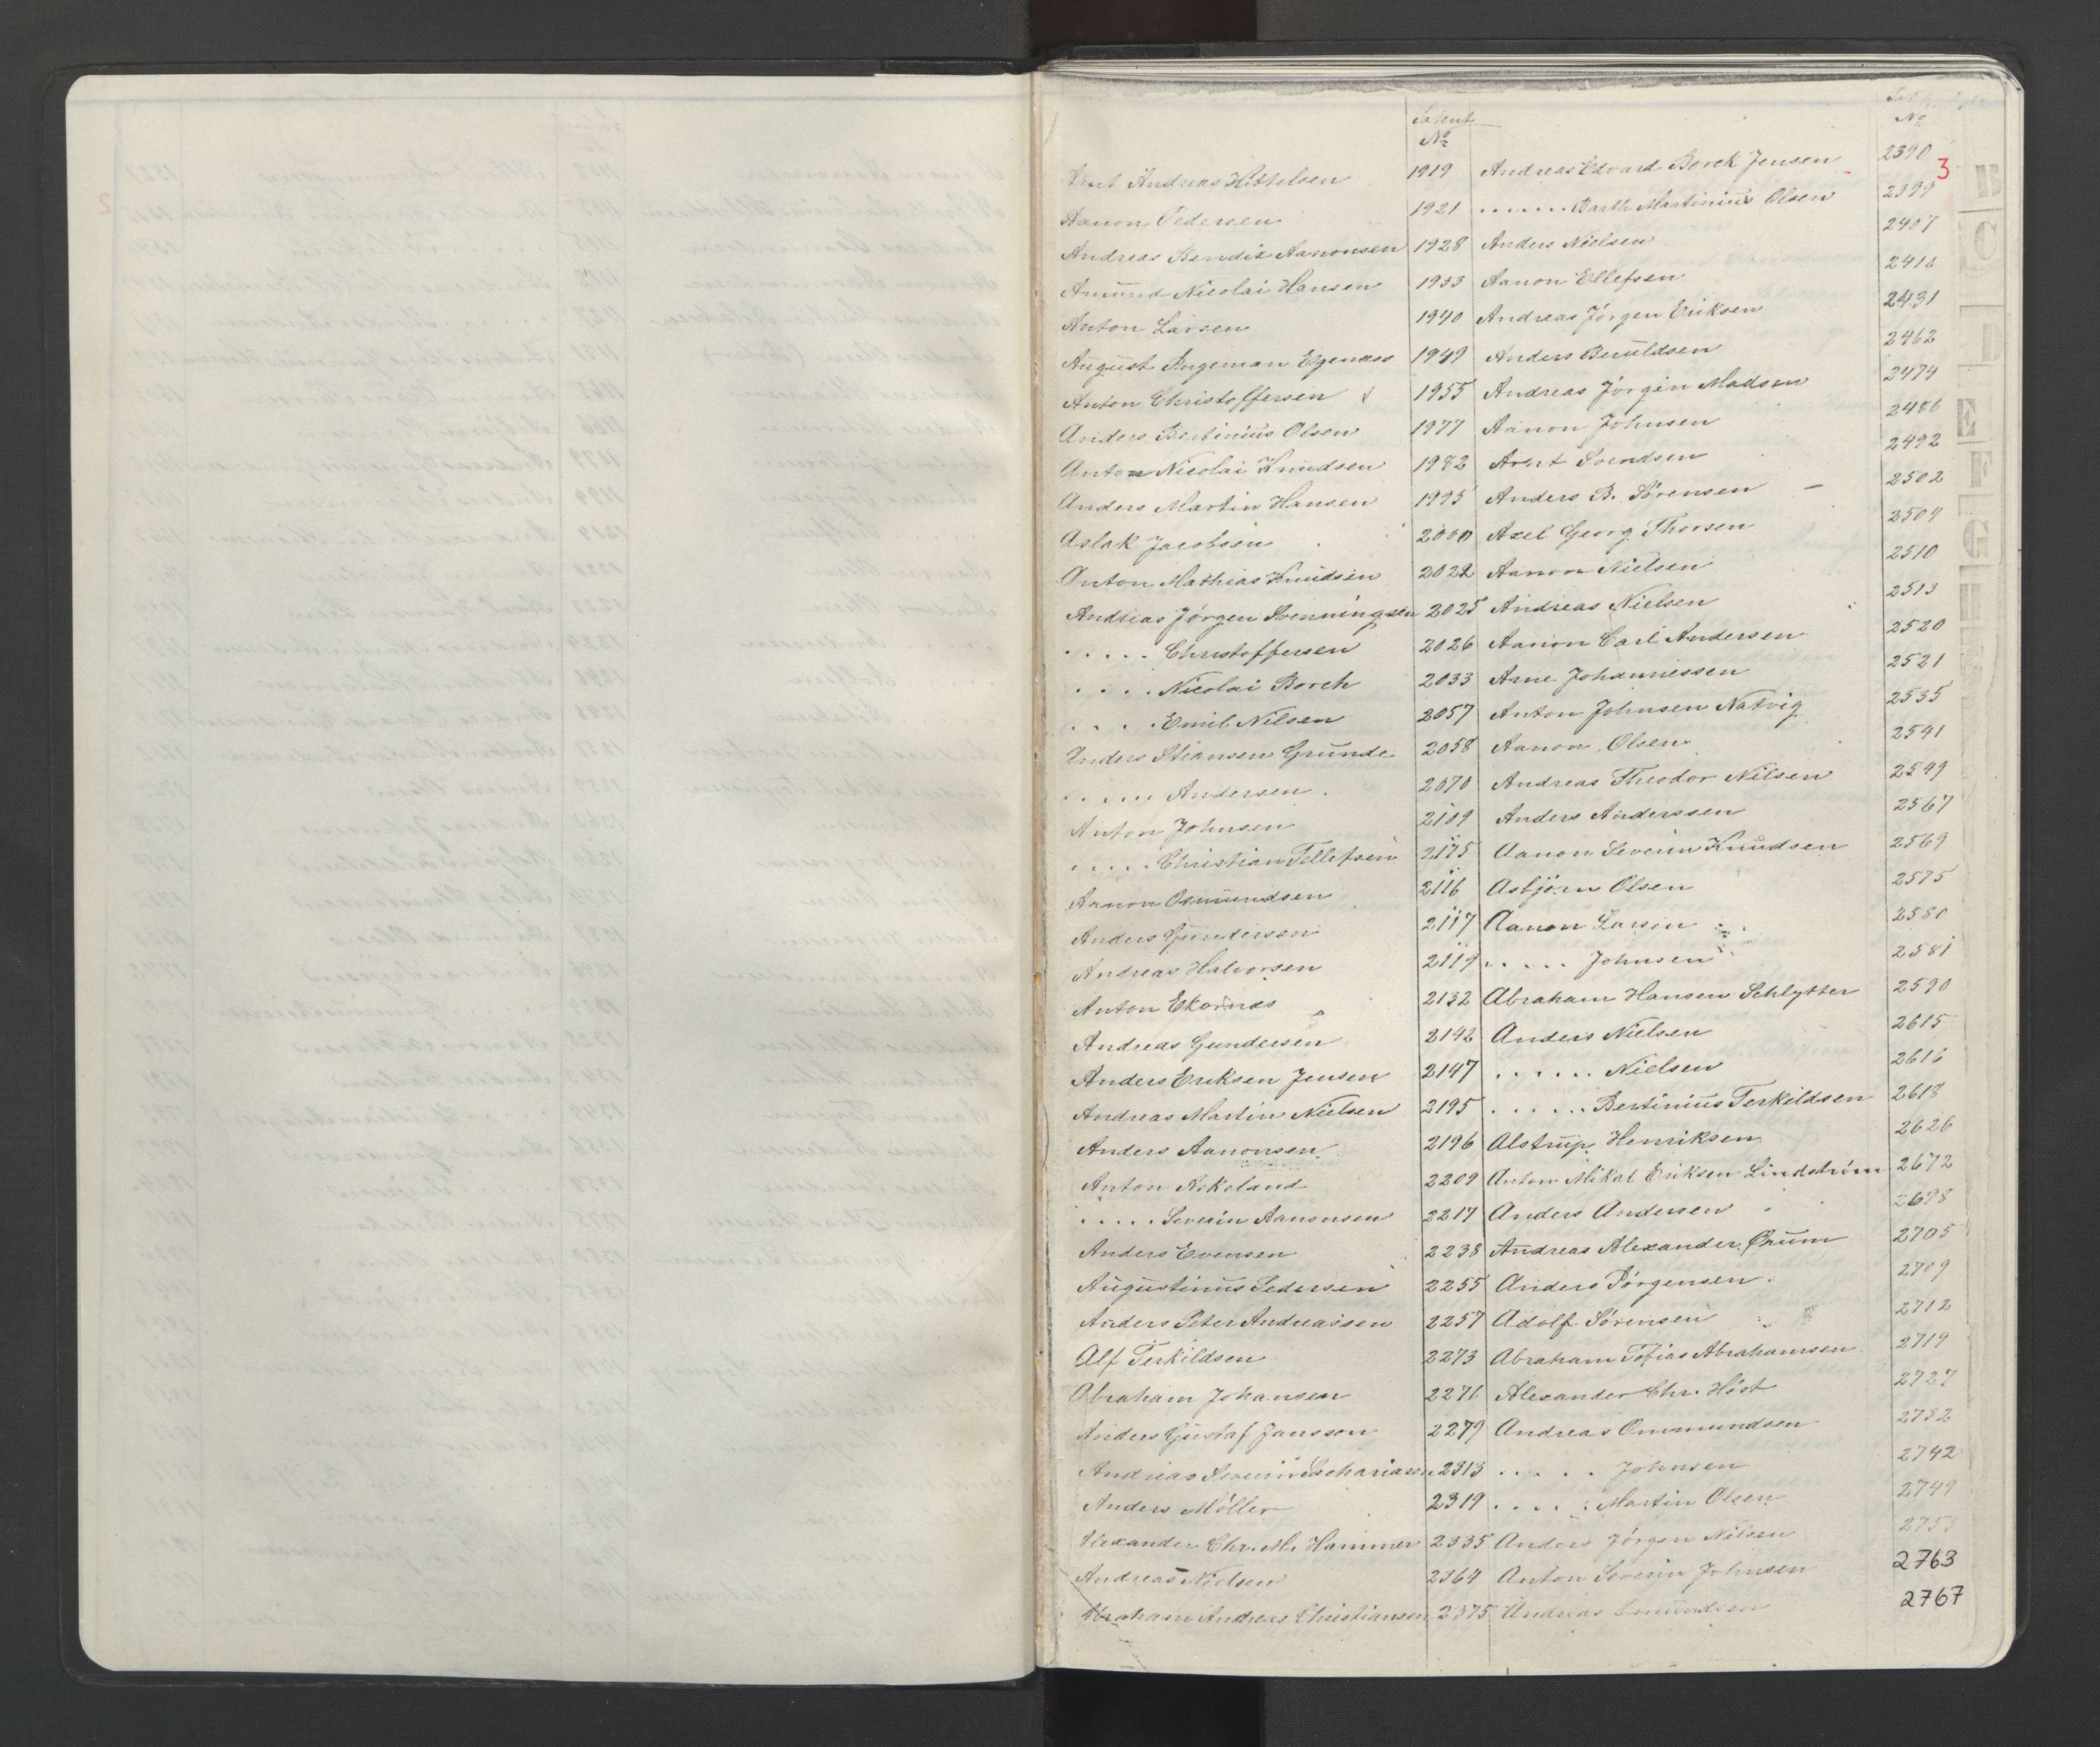 Patent No
3
Arnt Andreas Kittelsen 1919 Andreas Edvard Borck Jensen 2390
Aanon Pedersen 1921 . . . . . . Barth Martinius Olsen 2399
Andreas Bendix Aanonsen 1928 Anders Nielsen 2407
Amund Nicolai Hansen 1933 Aanon Ellefsen 2418
Anton Larsen 1940 Andreas Jörgen Eriksen 2431
August Ingeman Egenæss 1949 Anders Beruldsen 2462
Anton Christoffersen 1955 Andreas Jörgen Madsen 2474
Anders Bertinius Olsen 1977 Aanon Johnsen 2486
Anton Nicolai Knudsen 1982 Arnt Svendsen 2492
Anders Martin Hansen 1995 Anders B. Sörensen 2502
Aslak Jacobsen 2000 Axel Georg Thorsen 2504
Anton Mathias Knudsen 2022 Aanon Nielsen 2510
Andreas Jörgen Svenningsen 2025 Andreas Nielsen 2513
. . . . . Christoffersen 2026 Aanon Carl Andersen 2520
. . . . Nicolai Borch 2033 Arne Johannessen 2521
. . . . Emil Nilsen 2057 Anton Johnsen Natvig 2535
Anders Stiansen Grunde 2058 Aanon Olsen 2541
. . . . . . Andersen 2070 Andreas Theodor Nilsen 2549
Anton Johnsen 2109 Anders Anderssen 2567
. . . . . Christian Tellefsen 2115 Aanon Severin Knudsen 2569
Aanon Osmundsen 2116 Asbjörn Olsen 2575
Anders Gundersen 2117 Aanon Larsen 2580
Andreas Halvorsen 2119 . . . . . Johnsen 2581
Anton Ekornæs 2132 Abraham Hansen Schlytter 2590
Andreas Gundersen 2142 Anders Nielsen 2615
Anders Eriksen Jensen 2147 . . . . . . Nielsen 2616
Andreas Martin Nielsen 2195 . . . . . . Bertinius Terkildsen 2618
Anders Aanonsen 2196 Alstrup Henriksen 2626
Anton Rokeland 2209 Anton Mikal Eriksen Lindström 2672
. . . . . Severin Aanonsen 2217 Anders Andersen 2698
Anders Evensen 2238 Andreas Alexander Ørum 2705
Augustinus Pedersen 2255 Anders Jörgensen 2709
Anders Peter Andreassen 2257 Adolf Sörensen 2712
Alf Terkildsen 2273 Abraham Tobias Abrahamsen 2719
Abraham Johansen 2276 Alexander Chr. Höst 2727
Anders Gustaf Jansson 2279 Andreas Ommundsen 2732
Andreas Severin Zachariasen 2313 . . . . . Johnsen 2742
Anders Möller 2319 . . . . . Martin Olsen 2749
Alexander Chr. M. Hammer 2335 Anders Jörgen Nilsen 2753
Andreas Nielsen 2364 Anton Severin Johnsen 2763
Abraham Andreas Christiansen 2375 Andreas Osmundsen 2767